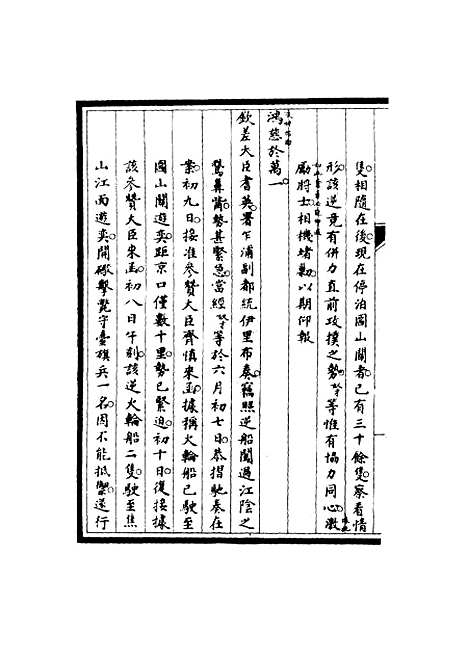 隻相隨在後現在停泊圌山關者已有三十餘隻察看情
形該逆竟有併力直前攻撲之勢奴才等惟有協力同心激
勵將士相機堵勦以期仰報
鴻慈於萬一
欽差大臣耆英署乍浦副都統伊里布奏竊照逆船闖過江陰之
鵞鼻嘴勢甚緊急當經奴才等於六月初七日恭摺馳奏在
案初九日接准參贊大臣齊慎來函據稱火輪船已駛至
圌山關遊奕距京口僅數十里勢已緊迫初十日復接據
該參贊大臣來函初八日午刻該逆火輪船二隻駛至焦
山江面遊奕開礮擊斃守臺旗兵一名因不能抵禦遂行